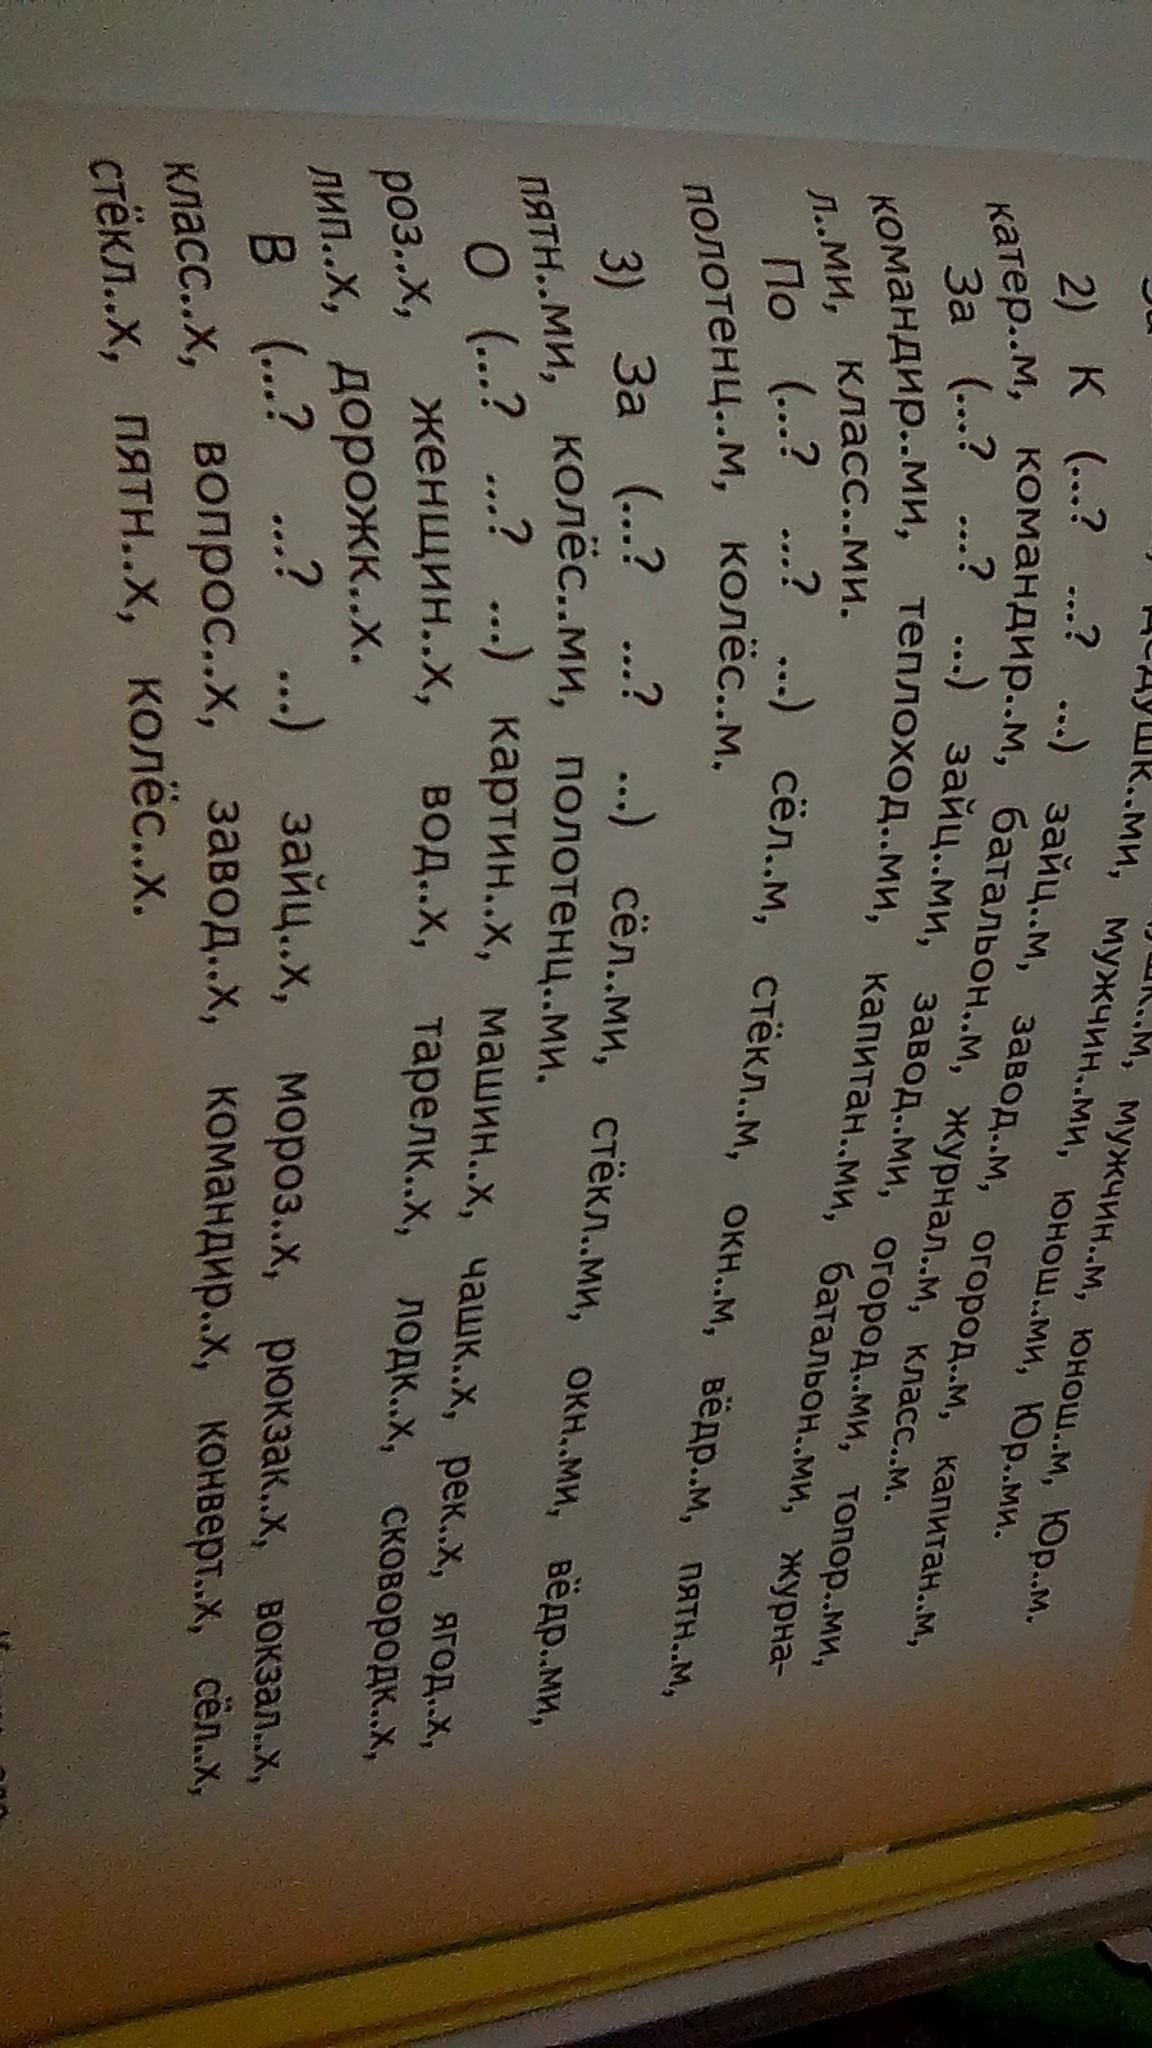 дедушк..ми, мужчин..ми, юнош..ми, Юр..ми.
мужчин..м, юнош..м, Юр..м.
2) К (...? ...? ...) зайц..м, завод..м, огород..м, капитан..м,
катер..м, командир..м, батальон..м, журнал..м, класс..м.
За (...? ...? ...) зайц..ми, завод..ми, огород..ми, топор..ми,
командир..ми, теплоход..ми, капитан..ми, батальон..ми, журна-
л..ми, класс..ми.
По (...? ...? ...) сёл..м, стёкл..м, окн..м, вёдр..м, пятн..м,
полотенц..м, колёс..м.
3) За (...? ...? ...) сёл..ми, стёкл..ми, окн..ми, вёдр..ми,
пятн..ми, колёс..ми, полотенц..ми.
О (...? ...? ...) картин..х, машин..х, чашк..х, рек..х, ягод..х,
роз..х, женщин..х, вод..х, тарелк..х, лодк..х, сковородк..х,
лип..х, дорожк..х.
В (...? ...? ...) зайц..х, мороз..х, рюкзак..х, вокзал..х,
класс..х, вопрос..х, завод..х, командир..х, конверт..х, сёл..х,
стёкл..х, пятн..х, колёс..х.